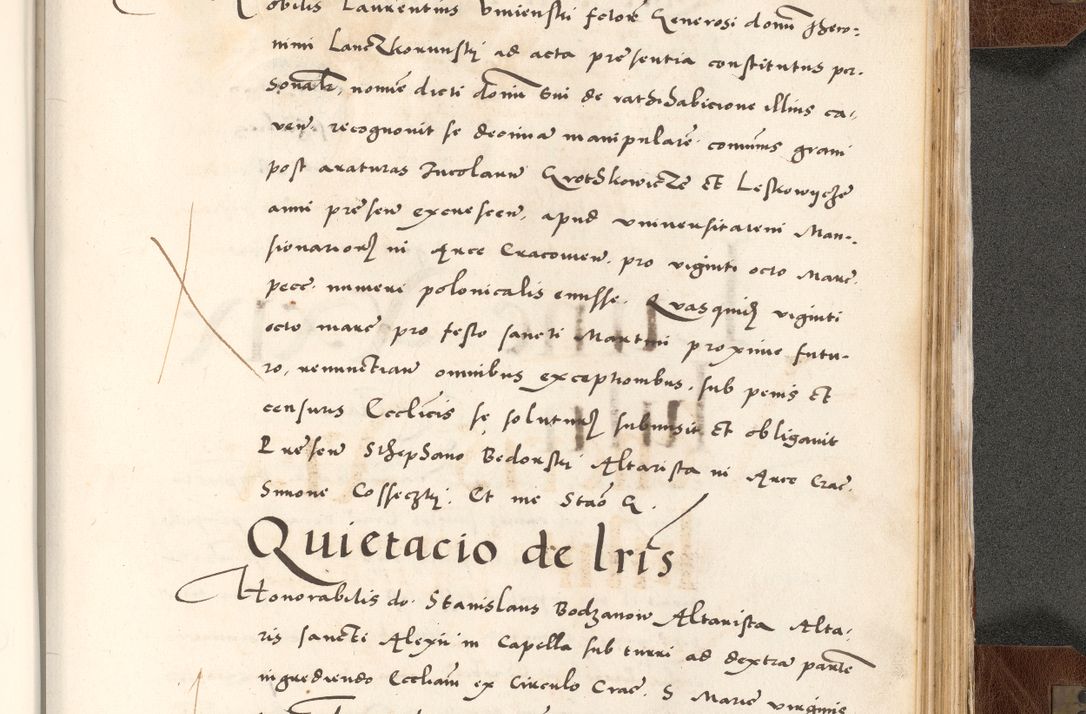 obilis Laurentius Vnienski fctor Generosi domi Hiero-
nimi Lanczkorunskj ad acta presentia constitutus per-
sonalr, nomie dicti domi sui de rathihabicione illius ca-
ven. recognovit se decimā manipularē. comunis grani
post araturas Incolarū Grothkowicze et Leskowycze
anni presen excrescen, apud vniversitatem Man-
sionariorȝ ni Arce Cracovien. pro viginti octo Marc.
pecc. numeri polonicalis emisse. Quasquidȝ viginti
octo marc pro festo sancti Martini proxime futu-
ro, renunctian omnibus exceptionibus, sub penis et
censuris Ecclicis se soluturȝ submisit et obligavit
Presen Sthephano Bedorskj Altarista ni Arce Crac.
Simone Cosseczkj. Et me Stao G.
Quietacio de lris
Honorabilis do. Stanislaus Bodzanow Altarista Alta-
ris sancti Alexii in Capella sub turri ad dextrā partē
ingrediendo Eccliam ex Circulo Crac. S Marie virginis